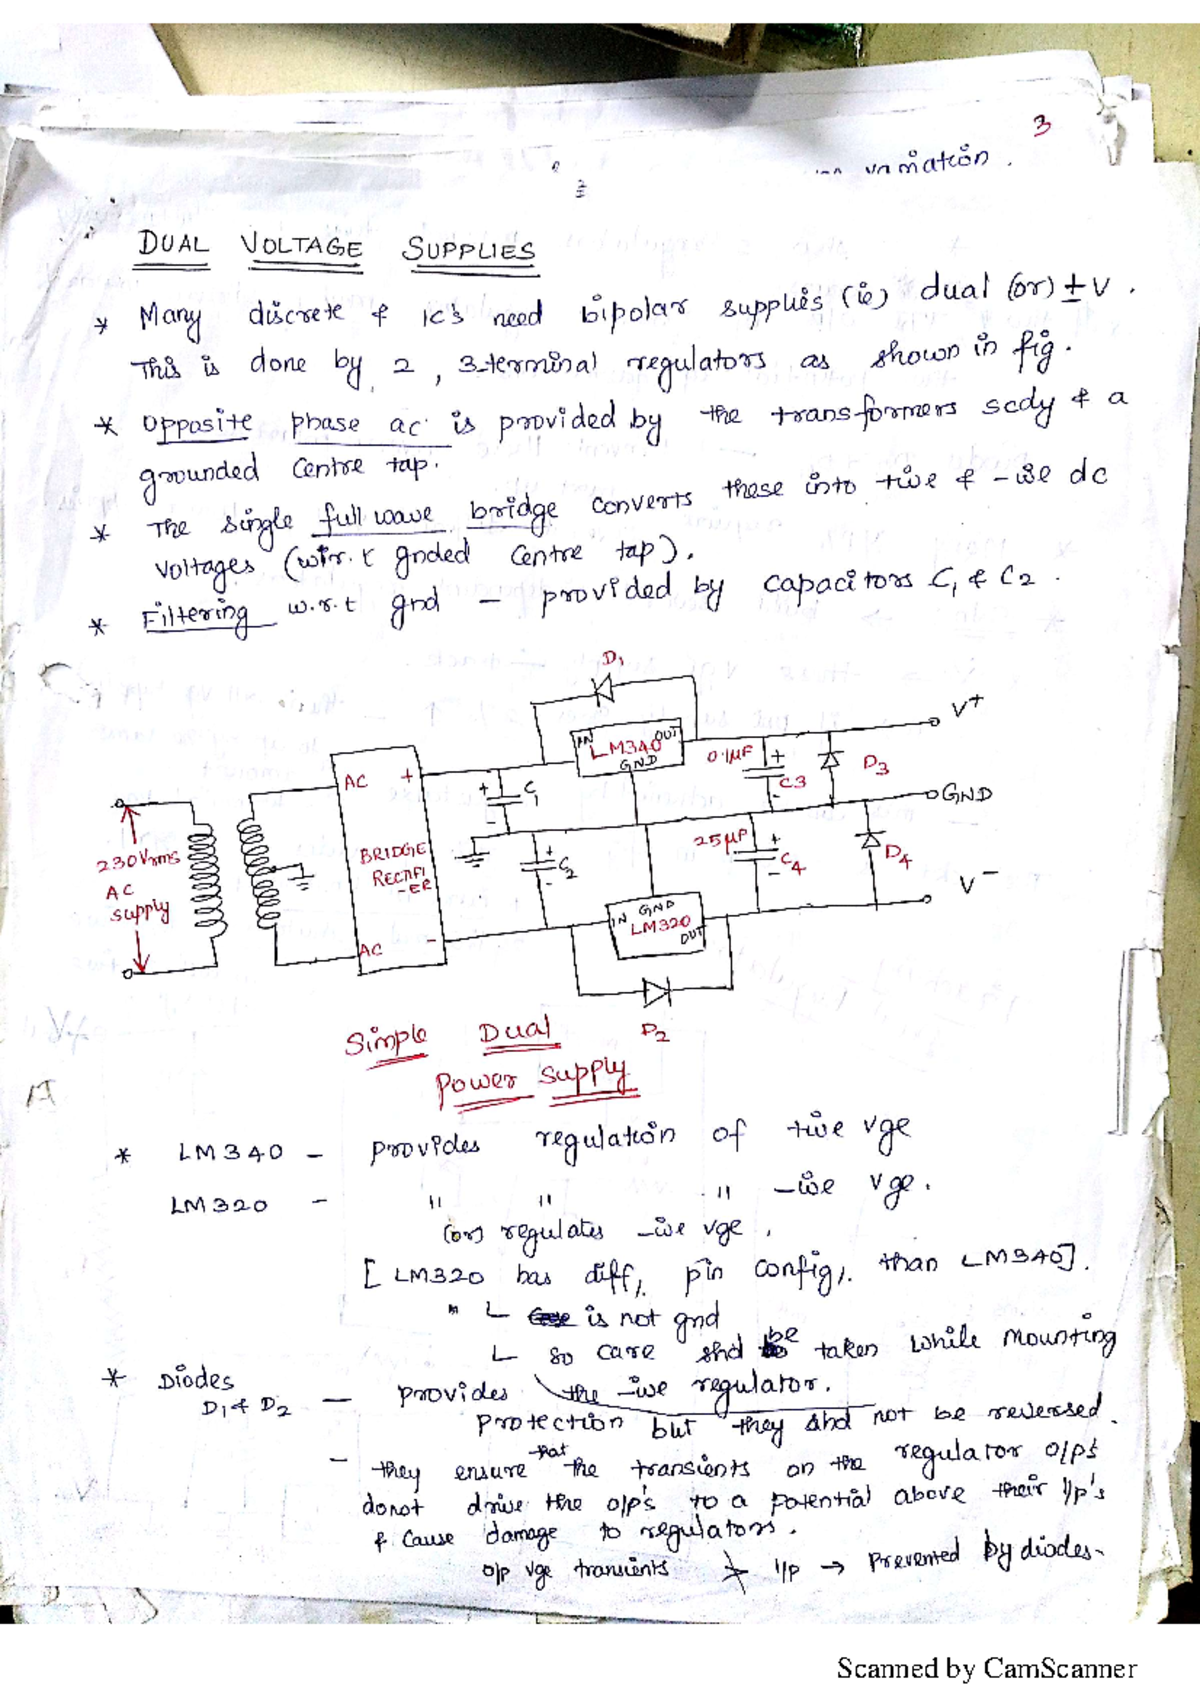 3
variation.
DUAL VOLTAGE SUPPLIES
* Many discrete & IC's need bipolar supplies (ie) dual (or) ±V.
This is done by 2, 3-terminal regulators as shown in fig.
* Opposite phase ac is provided by the transformers scdy & a
grounded centre tap.
* The single full wave bridge converts these into +ive & -ive dc
voltages (w.r.t gnded centre tap).
* Filtering w.r.t gnd - provided by capacitors C1 & C2.
D1
V+
IN OUT
LM340
GND
0.1µF + C3 -
D3
AC +
+ C1 -
GND
230Vrms
AC
supply
BRIDGE
RECTIFI
-ER
+ C2 -
25µF + C4 -
D4
V-
IN GND
LM320
OUT
AC -
D2
Simple Dual
Power Supply
* LM340 - provides regulation of +ive vge
LM320 - " " " -ive vge.
(or) regulates -ive vge.
[LM320 has diff, pin config, than LM340].
is not gnd
so care shd be taken while mounting
the -ive regulator.
* Diodes
D1 & D2 - provides
protection but they shd not be reversed.
- they ensure that the transients on the regulator o/p's
donot drive the o/p's to a potential above their i/p's
& cause damage to regulators.
o/p vge transients i/p → Prevented by diodes.
Scanned by CamScanner